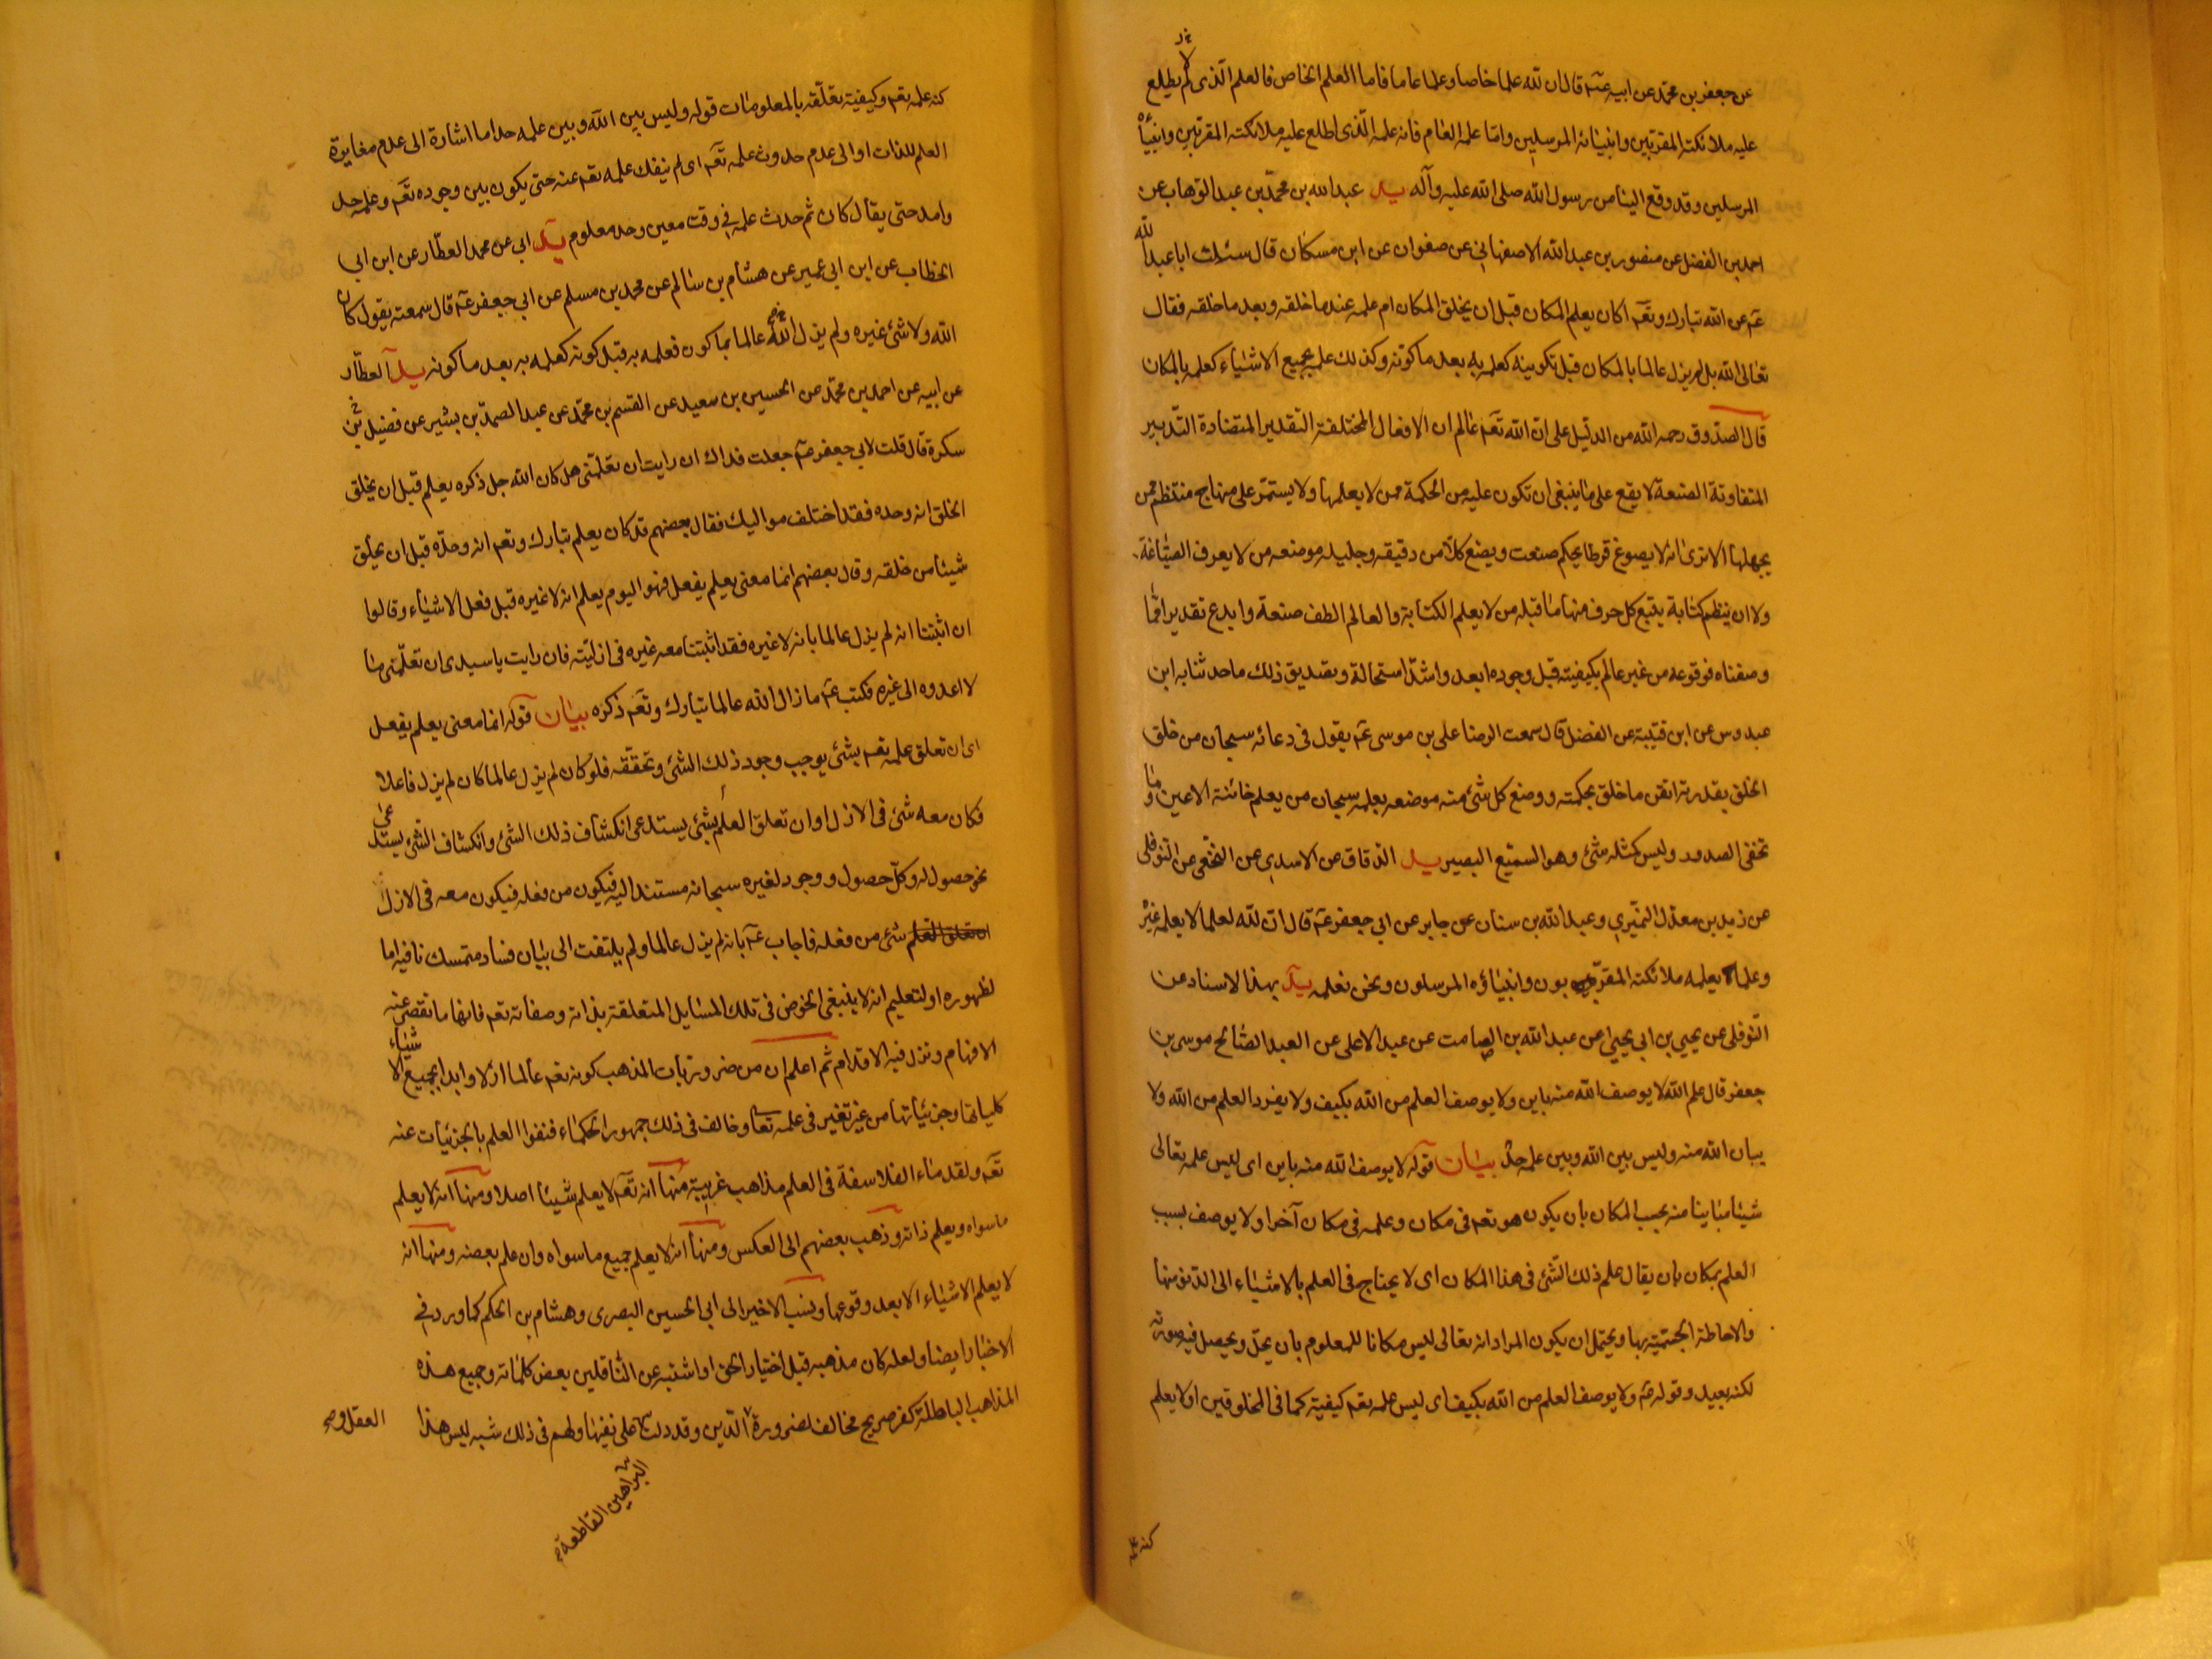 عن جعفر بن محمد عن ابيه عهم قال ان لله علما خاصا وعلما عاما فاما العلم الخاص فالعلم الذى لم يطلع
عليه ملائكته المقربين وانبيائه المرسلين واما علمه العام فانه علمه الذى اطلع عليه ملائكته المقربين وانبياءه
المرسلين وقد وقع الينا من رسول الله صلى الله عليه وآله يد عبد الله بن محمد بن عبد الوهاب عن
احمد بن الفضل عن منصور بن عبد الله الاصفهانى عن صفوان عن ابن مسكان قال سئلت ابا عبد الله
عم عن الله تبارك وتعم اكان يعلم المكان قبل ان يخلق المكان ام علمه عند ما خلقه وبعد ما خلقه فقال
تعالى الله بل لم يزل عالما بالمكان قبل تكوينه كعلمه به بعد ما كونه وكذلك علمه بجميع الاشياء كعلمه بالمكان
قال الصدوق رحمه الله من الدليل على ان الله تعم عالم ان الافعال المختلفة التقدير المتضادة التدبير
المتفاوتة الصنعة لا يقع على ما ينبغى ان تكون عليه من الحكمة ممن لا يعلمها ولا يستمر على منهاج منتظم ممن
يجهلها الا ترى انه لا يصوغ قرطا يحكم صنعته ويضع كلا من دقيقه وجليله موضعه من لا يعرف الصياغة
ولا ان ينظم كتابة يتبع كل حرف منها ما قبله من لا يعلم الكتابة والعالم الطف صنعة وابدع تقديرا مما
وصفناه فوقوعه من غير عالم بكيفيته قبل وجوده ابعد واشد استحالة وتصديق ذلك ما حدثنا به ابن
عبدوس عن ابن قتيبة عن الفضل قال سمعت الرضا على بن موسى عم يقول فى دعائه سبحان من خلق
الخلق بقدرته اتقن ما خلق بحكمته ووضع كل شئ منه موضعه بعلمه سبحان من يعلم خائنة الاعين وما
تخفى الصدور وليس كمثله شئ وهو السميع البصير يد الدقاق عن الاسدى عن النخعى عن النوفلى
عن زيد بن معدل النميرى وعبد الله بن سنان عن جابر عن ابى جعفر عم قال ان لله لعلما لا يعلمه غيره
وعلما يعلمه ملائكته المقربون وانبياؤه المرسلون ونحن نعلمه يد بهذا الاسناد عن
النوفلى عن يحيى بن ابى يحيى عن عبد الله بن الصامت عن عبد الاعلى عن العبد الصالح موسى بن
جعفر قال علم الله لا يوصف الله منه باين ولا يوصف العلم من الله بكيف ولا يفرد العلم من الله ولا
يبان الله منه وليس بين الله وبين علمه حد بيان قوله لا يوصف الله منه باين اى ليس علمه تعالى
شيئا مباينا منه بحسب المكان بان يكون هو تعم فى مكان وعلمه فى مكان آخر او لا يوصف بسبب
العلم بمكان بان يقال علم ذلك الشئ فى هذا المكان اى لا يحتاج فى العلم بالاشياء الى الدنو منها
والاحاطة الجسمية بها ويحتمل ان يكون المراد انه تعالى ليس مكانا للمعلوم بان يحل ويحصل فيه صورته
لكنه بعيد وقوله عم ولا يوصف العلم من الله بكيف اى ليس علمه تعم كيفية كما فى المخلوقين او لا يعلم
كنه علمه تعم وكيفية تعلقه بالمعلومات قوله وليس بين الله وبين علمه حد اما اشارة الى عدم مغايرة
العلم للذات او الى عدم حدوث علمه تعم اى لم ينفك علمه تعم عنه حتى يكون بين وجوده تعم وعلمه حد
وامد حتى يقال كان ثم حدث علمه فى وقت معين وحد معلوم يد ابى عن محمد العطار عن ابن ابى
الخطاب عن ابن ابى عمير عن هشام بن سالم عن محمد بن مسلم عن ابى جعفر عم قال سمعته يقول كان
الله ولا شئ غيره ولم يزل الله عالما بما كون فعلمه به قبل كونه كعلمه به بعد ما كونه يد العطار
عن ابيه عن احمد بن محمد عن الحسين بن سعيد عن القسم بن محمد عن عبد الصمد بن بشير عن فضيل بن
سكرة قال قلت لابى جعفر عم جعلت فداك ان رايت ان تعلمنى هل كان الله جل ذكره يعلم قبل ان يخلق
الخلق انه وحده فقد اختلف مواليك فقال بعضهم قد كان يعلم تبارك وتعم انه وحده قبل ان يخلق
شيئا من خلقه وقال بعضهم انما معنى يعلم يفعل فهو اليوم يعلم انه لا غيره قبل فعل الاشياء وقالوا
ان اثبتنا انه لم يزل عالما بانه لا غيره فقد اثبتنا معه غيره فى ازليته فان رايت يا سيدى ان تعلمنى ما
لا اعدوه الى غيره فكتب عم ما زال الله عالما تبارك وتعم ذكره بيان قوله انما معنى يعلم يفعل
اى ان تعلق علمه تعم بشئ يوجب وجود ذلك الشئ وتحققه فلو كان لم يزل عالما كان لم يزل فاعلا
فكان معه شئ فى الازل او ان تعلق العلم بشئ يستدعى انكشاف ذلك الشئ وانكشاف الشئ يستدعى
نحو حصول له وكل حصول ووجود لغيره سبحانه مستند اليه فيكون من فعله فيكون معه فى الازل
شئ من فعله فاجاب عم بانه لم يزل عالما ولم يلتفت الى بيان فساد متمسك نافيه اما
لظهوره او لتعليم انه لا ينبغى الخوض فى تلك المسايل المتعلقة بذاته وصفاته تعم فانها مما تقصر عنه
الافهام وتزل فيه الاقدام ثم اعلم ان من ضروريات المذهب كونه تعم عالما ازلا وابدا بجميع الاشياء
كلياتها وجزئياتها من غير تغير فى علمه تعا وخالف فى ذلك جمهور الحكماء فنفوا العلم بالجزئيات عنه
تعم ولقدماء الفلاسفة فى العلم مذاهب غريبة منها انه تعم لا يعلم شيئا اصلا ومنها انه لا يعلم
ما سواه ويعلم ذاته وذهب بعضهم الى العكس ومنها انه لا يعلم جميع ما سواه وان علم بعضه ومنها انه
لا يعلم الاشياء الا بعد وقوعها ونسب الاخير الى ابى الحسين البصرى وهشام بن الحكم كما ورد فى
الاخبار ايضا ولعله كان مذهبه قبل اختيار الحق او اشتبه عن الناقلين بعض كلماته وجميع هذه
المذاهب الباطلة كفر صريح مخالف لضرورة الدين وقد دلت على نفيها ولهم فى ذلك شبه ليس هذا
العقل و
البراهين القاطعة
كنه علمه